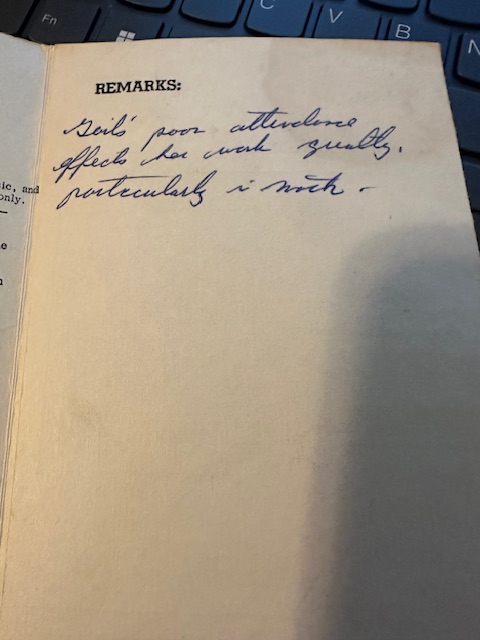 Fn
C
V
B
N
REMARKS:
Gail's poor attendance
effects her work greatly.
particularly i math -
ic, and
only.
e
n